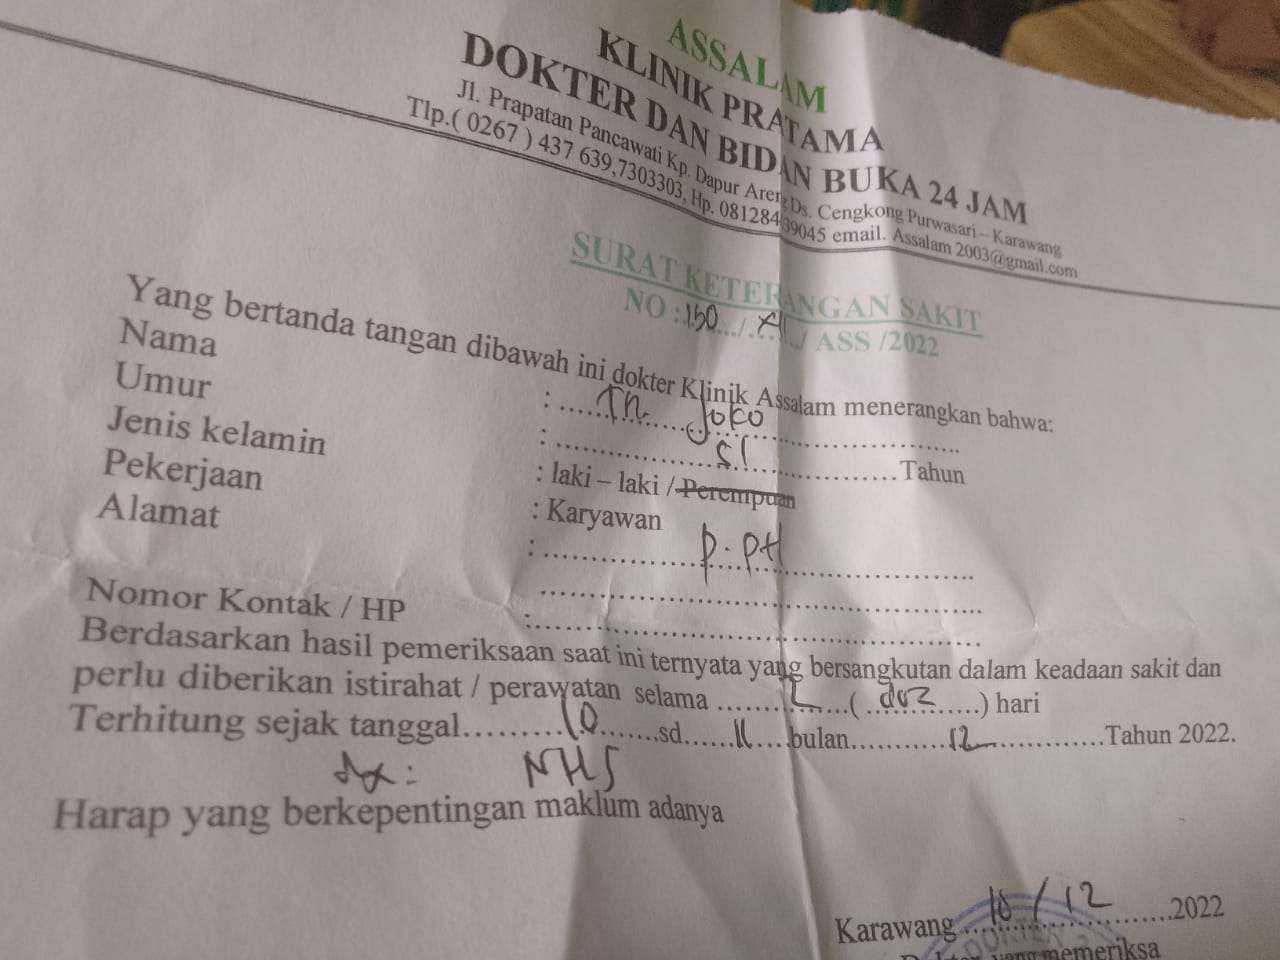 ASSALAM
KLINIK PRATAMA
DOKTER DAN BIDAN BUKA 24 JAM
Jl. Prapatan Pancawati Kp. Dapur Areng Ds. Cengkong Purwasari – Karawang
Tlp.( 0267 ) 437 639,7303303, Hp. 081284 39045 email. Assalam 2003@gmail.com
SURAT KETERANGAN SAKIT
NO : 150 / XII / ASS /2022
Yang bertanda tangan dibawah ini dokter Klinik Assalam menerangkan bahwa:
Nama : Tn. Joko
Umur : 51 Tahun
Jenis kelamin : laki – laki / Perempuan
Pekerjaan : Karyawan
Alamat : P. PH
Nomor Kontak / HP :
Berdasarkan hasil pemeriksaan saat ini ternyata yang bersangkutan dalam keadaan sakit dan
perlu diberikan istirahat / perawatan selama 2 ( dua ) hari
Terhitung sejak tanggal 10 sd 11 bulan 12 Tahun 2022.
dx : NHS
Harap yang berkepentingan maklum adanya
Karawang 10/12 2022
DOKTER
yang memeriksa